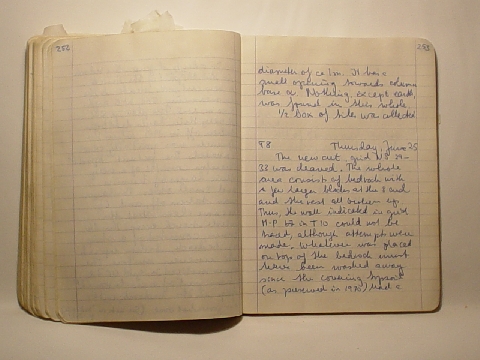 252
253
diameter of ca 1m. It has a
small opening towards column
base a. Nothing, except earth,
was found in this whole.
1/2 box of tiles was collected
T8 Thursday, June 25
The new cut, grid
33 was cleaned. The whole
area consists of bedrock with
a few larger blocks at the S end
and the rest all broken up.
Thus, the wall indicated in grid
M-P in T10 could not be
traced, although attempts were
made. Whatever was placed
on top of the bedrock must
have been washed away
since the covering topsoil
(as preserved in 1970) had a